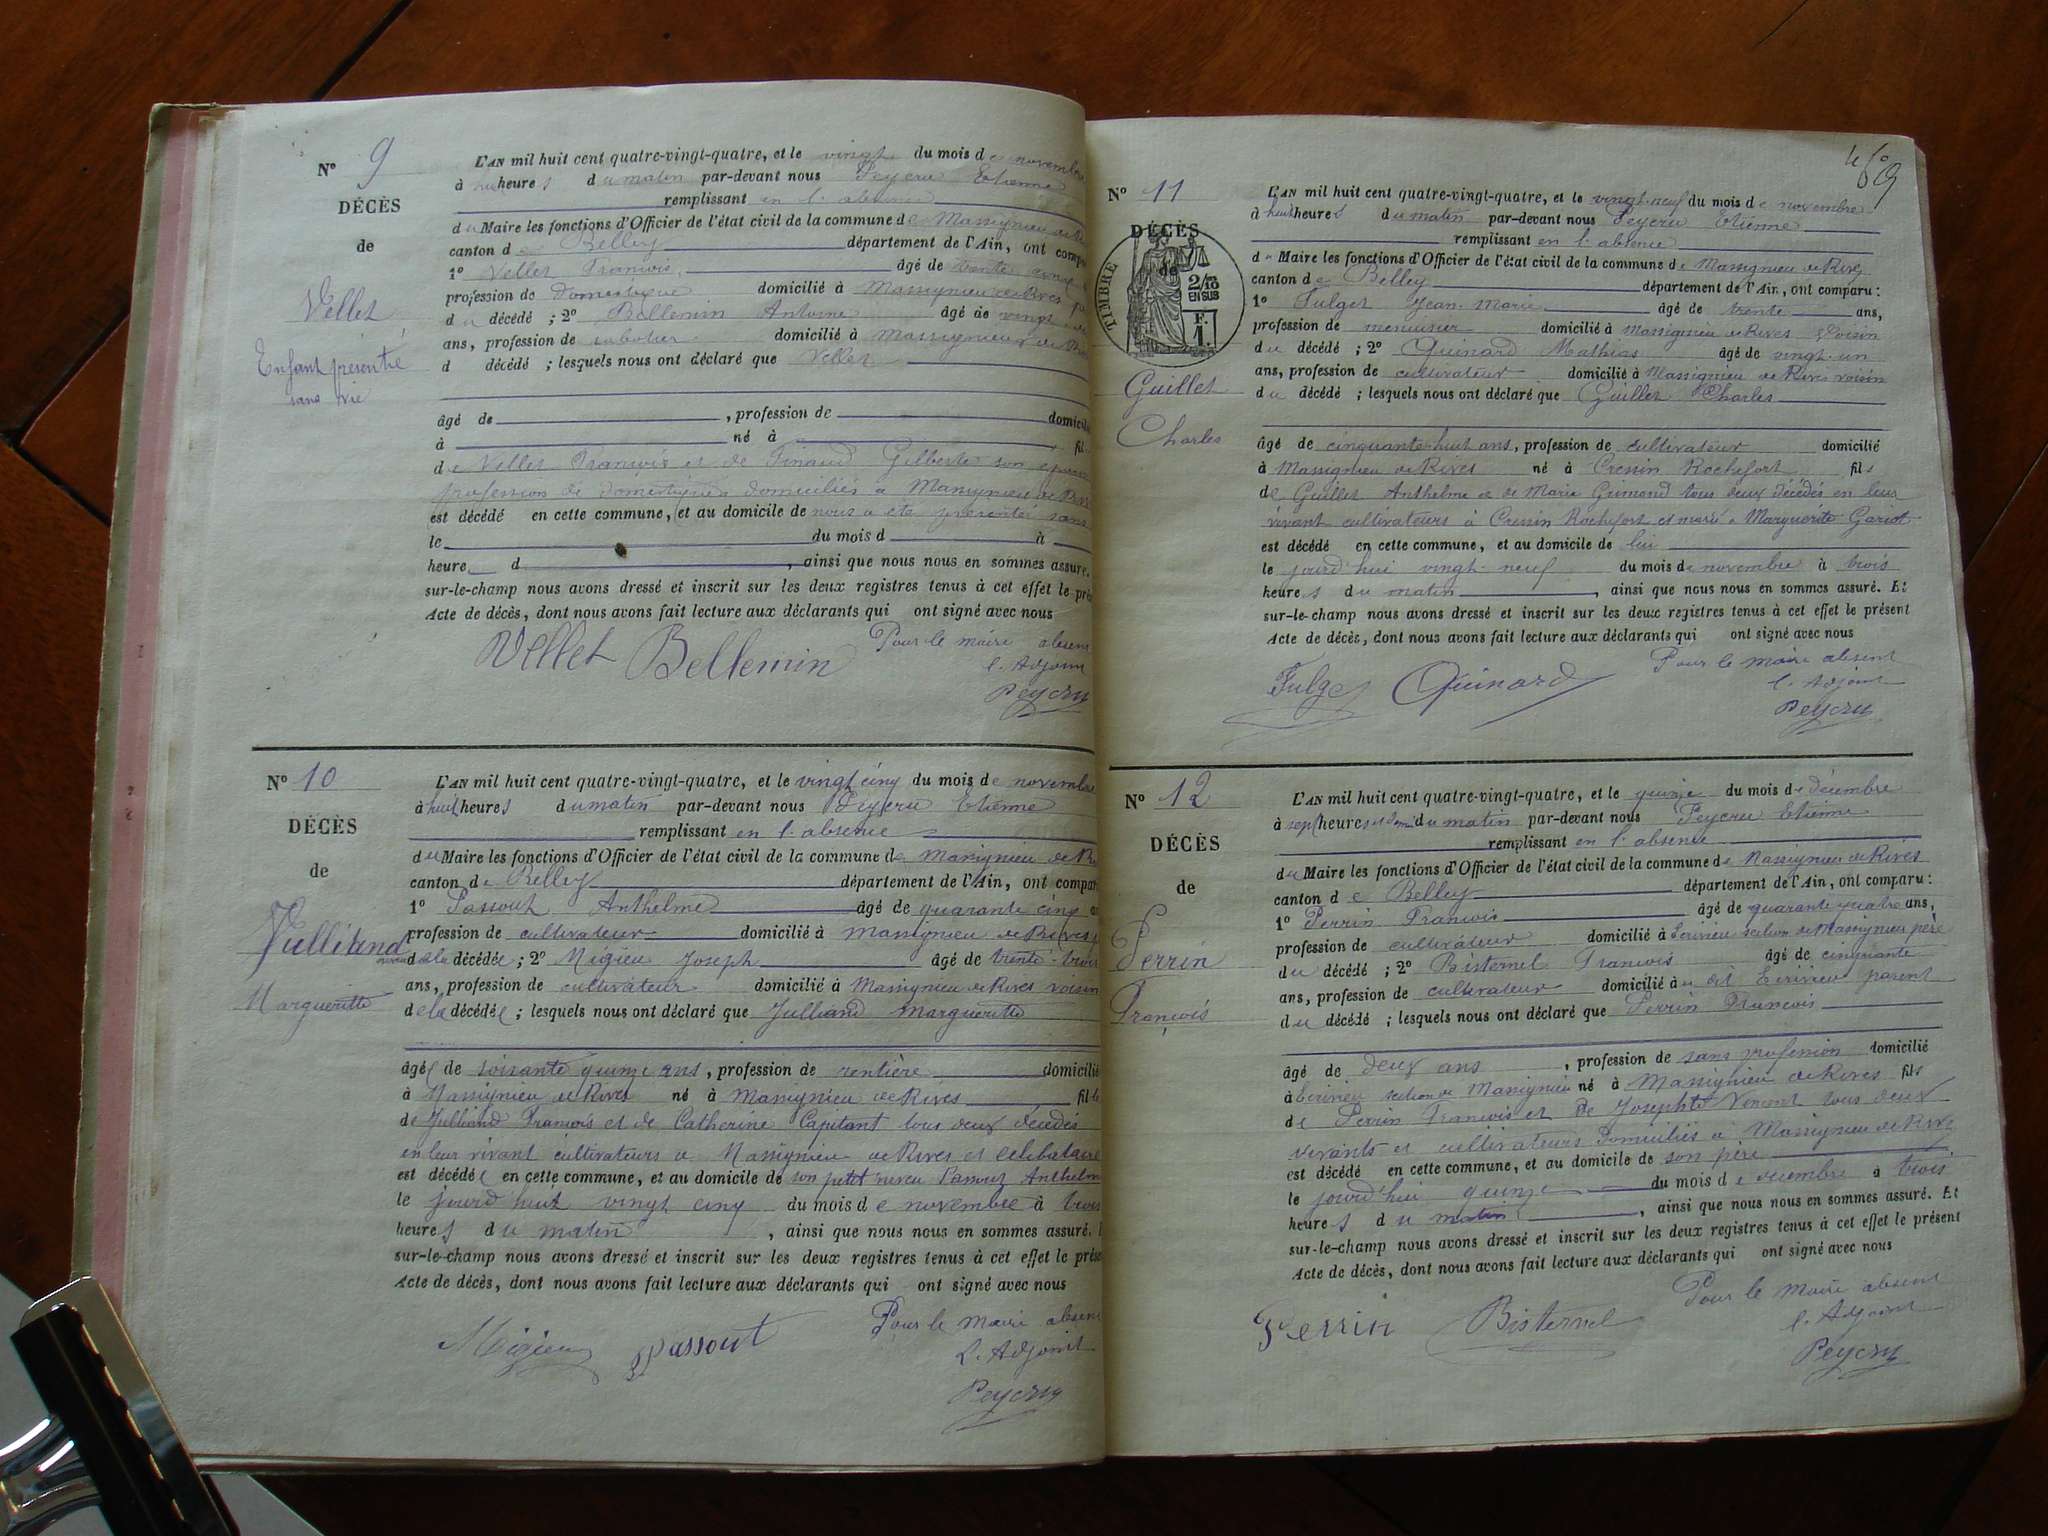 Nº 9
DÉCÈS
de
Vellet
Enfant présenté
sans vie
L'AN mil huit cent quatre-vingt-quatre, et le vingt du mois de novembre
à huit heures du matin par-devant nous Peycru Etienne
remplissant en l'absence
du Maire les fonctions d'Officier de l'état civil de la commune de Massignieu de
canton de Belley département de l'Ain, ont comp
1º Vellet Francois, âgé de trente cinq
profession de domestique domicilié à Massignieu de Rives
du décédé ; 2º Bellemin Antoine âgé de vingt
ans, profession de sabotier domicilié à Massignieu de
d décédé ; lesquels nous ont déclaré que Vellet
âgé de , profession de domicil
à né à , fil
de Vellet Francois et de Pinaud Gilberte son épouse
profession de domestiques domiciliés à Massignieu de Rives
est décédé en cette commune, et au domicile de nous a été présenté sans
le du mois d à
heure d , ainsi que nous nous en sommes assuré.
sur-le-champ nous avons dressé et inscrit sur les deux registres tenus à cet effet le pré
Acte de décès, dont nous avons fait lecture aux déclarants qui ont signé avec nous
Vellet Bellemin Pour le maire absent
l'Adjoint
Peycru
Nº 10
DÉCÈS
de
Julliand
Margueritte
L'AN mil huit cent quatre-vingt-quatre, et le vingt cinq du mois de novembre
à huit heures du matin par-devant nous Peycru Etienne
remplissant en l'absence
du Maire les fonctions d'Officier de l'état civil de la commune de Massignieu de Ri
canton de Belley département de l'Ain, ont compar
1º Passout Anthelme âgé de quarante cinq
profession de cultivateur domicilié à Massignieu de Rives
de la décédée ; 2º Migieu Joseph âgé de trente-trois
ans, profession de cultivateur domicilié à Massignieu de Rives voisin
de la décédée ; lesquels nous ont déclaré que Julliand Margueritte
âgée de soixante quinze ans, profession de rentière domicilié
à Massignieu de Rives né à Massignieu de Rives fille
de Julliand Francois et de Catherine Capitant tous deux décédés
en leur vivant cultivateurs à Massignieu de Rives et célibataire
est décédée en cette commune, et au domicile de son petit neveu Passout Anthelm
le jourd'huit vingt cinq du mois de novembre à trois
heures du matin , ainsi que nous nous en sommes assuré.
sur-le-champ nous avons dressé et inscrit sur les deux registres tenus à cet effet le prése
Acte de décès, dont nous avons fait lecture aux déclarants qui ont signé avec nous
Migieu Passout Pour le maire absent
L'Adjoint
Peycru
469
Nº 11
DÉCÈS
de
TIMBRE
2/10
EN SUS
F.
1.
Guillet
Charles
L'AN mil huit cent quatre-vingt-quatre, et le vingt-neuf du mois de novembre
à huit heures du matin par-devant nous Peycru Etienne
remplissant en l'absence
du Maire les fonctions d'Officier de l'état civil de la commune de Massignieu de Rives
canton de Belley département de l'Ain, ont comparu :
1º Fulget Jean-Marie âgé de trente ans,
profession de menuisier domicilié à Massignieu de Rives voisin
du décédé ; 2º Quinard Mathias âgé de vingt-un
ans, profession de cultivateur domicilié à Massignieu de Rives voisin
du décédé ; lesquels nous ont déclaré que Guillet Charles
âgé de cinquante-huit ans, profession de cultivateur domicilié
à Massignieu de Rives né à Cressin Rochefort fils
de Guillet Anthelme et de Marie Grimand tous deux décédés en leur
vivant cultivateurs à Cressin Rochefort et marié à Marguerite Gariot
est décédé en cette commune, et au domicile de lui
le jourd'hui vingt-neuf du mois de novembre à trois
heures du matin , ainsi que nous nous en sommes assuré. Et
sur-le-champ nous avons dressé et inscrit sur les deux registres tenus à cet effet le présent
Acte de décès, dont nous avons fait lecture aux déclarants qui ont signé avec nous
Fulget Quinard Pour le maire absent
l'Adjoint
Peycru
Nº 12
DÉCÈS
de
Perrin
François
L'AN mil huit cent quatre-vingt-quatre, et le quinze du mois de décembre
à sept heures et demi du matin par-devant nous Peycru Etienne
remplissant en l'absence
du Maire les fonctions d'Officier de l'état civil de la commune de Massignieu de Rives
canton de Belley département de l'Ain, ont comparu :
1º Perrin Francois âgé de quarante quatre ans,
profession de cultivateur domicilié à Ecirieu section de Massignieu père
du décédé ; 2º Bisternel Francois âgé de cinquante
ans, profession de cultivateur domicilié à u dit Ecirieu parent
du décédé ; lesquels nous ont déclaré que Perrin Francois
âgé de deux ans , profession de sans profession domicilié
à Ecirieu section de Massignieu né à Massignieu de Rives fils
de Perrin Francois et de Josephte Vincent tous deux
vivants et cultivateurs domiciliés à Massignieu de Rives
est décédé en cette commune, et au domicile de son père
le jourd'hui quinze du mois de décembre à trois
heures du matin , ainsi que nous nous en sommes assuré. Et
sur-le-champ nous avons dressé et inscrit sur les deux registres tenus à cet effet le présent
Acte de décès, dont nous avons fait lecture aux déclarants qui ont signé avec nous
Perrin Bisternel Pour le maire absent
l'Adjoint
Peycru